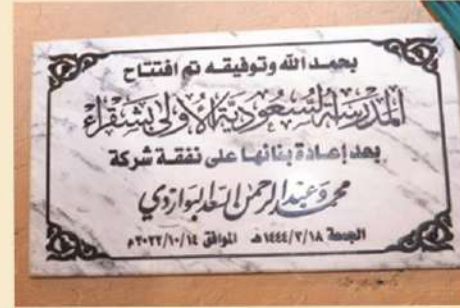 بحمد الله وتوفيقه تم افتتاح
المدرسة السعودية الأولى بشقراء
بعد إعادة بنائها على نفقة شركة
محمد وعبد الرحمن السعد البواردي
الجمعة ١٤٤٤/٣/١٨هـ الموافق ٢٠٢٢/١٠/١٤م